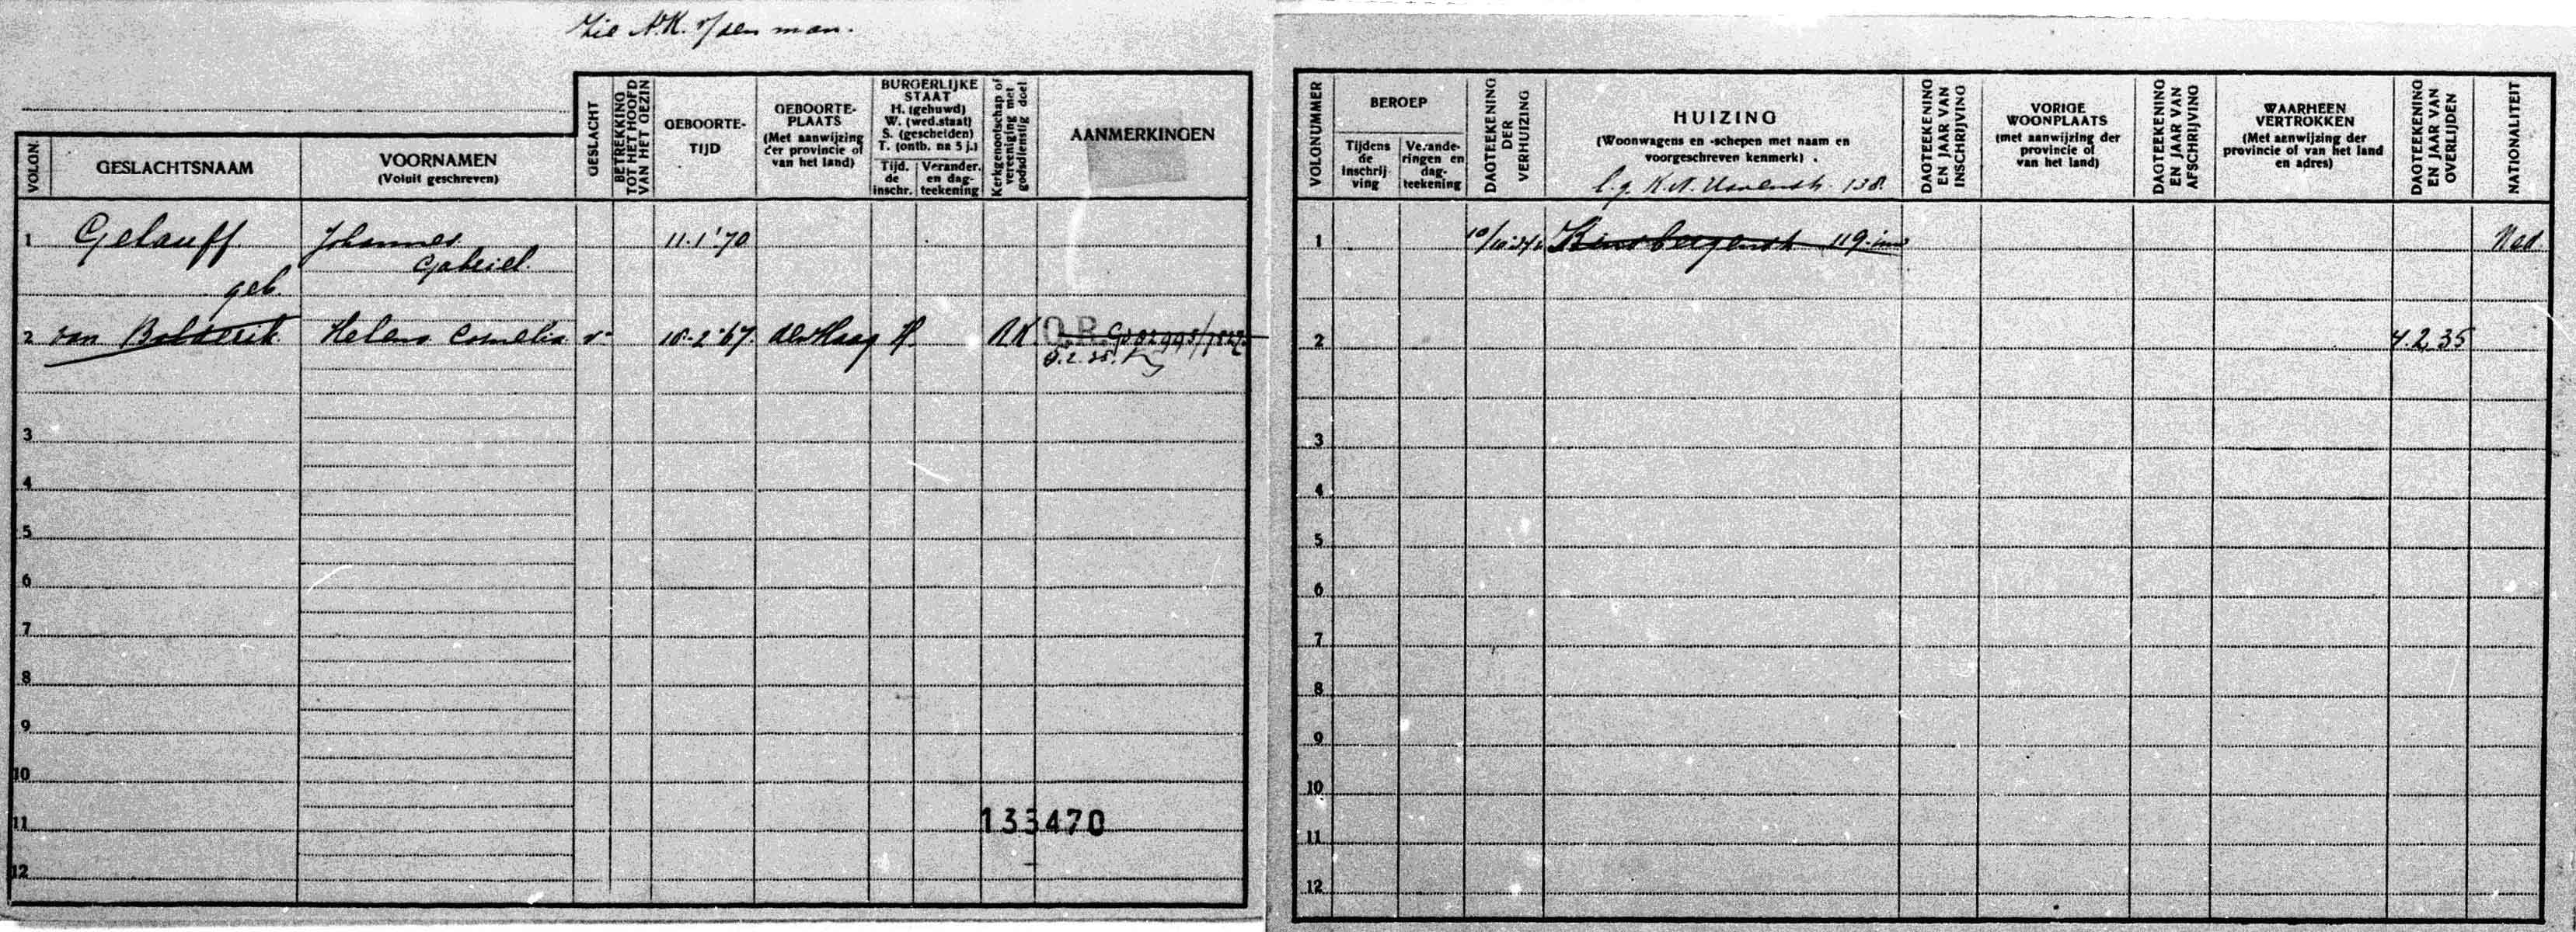 Zie N.K. v/den man.
VOLGN.
GESLACHTSNAAM
VOORNAMEN
(Voluit geschreven)
GESLACHT
BETREKKING
TOT HET HOOFD
VAN HET GEZIN
GEBOORTE-
TIJD
GEBOORTE-
PLAATS
(Met aanwijzing
der provincie of
van het land)
BURGERLIJKE
STAAT
H. (gehuwd)
W. (wed.staat)
S. (gescheiden)
T. (ontb. na 5 j.)
Tijd.
de
inschr.
Verander.
en dag-
teekening
Kerkgenootschap of
vereeniging met
godsdienstig doel
AANMERKINGEN
1 Gelauff Johannes 11.1'70
Gabriel
geb.
2 van Helena Cornelia v 2-'67 den Haag H. R.K. O.R.
3
4
5
6
7
8
9
10
11
12
133470
VOLGNUMMER
BEROEP
Tijdens
de
inschrij-
ving
Verande-
ringen en
dag-
teekening
DAGTEEKENING
DER
VERHUIZING
HUIZING
(Woonwagens en -schepen met naam en
voorgeschreven kenmerk)
l.g. 138
DAGTEEKENING
EN JAAR VAN
INSCHRIJVING
VORIGE
WOONPLAATS
(met aanwijzing der
provincie of
van het land)
DAGTEEKENING
EN JAAR VAN
AFSCHRIJVING
WAARHEEN
VERTROKKEN
(Met aanwijzing der
provincie of van het land
en adres)
DAGTEEKENING
EN JAAR VAN
OVERLIJDEN
NATIONALITEIT
1 Kinsbergenstr 119 Ned
2 4.2.35
3
4
5
6
7
8
9
10
11
12